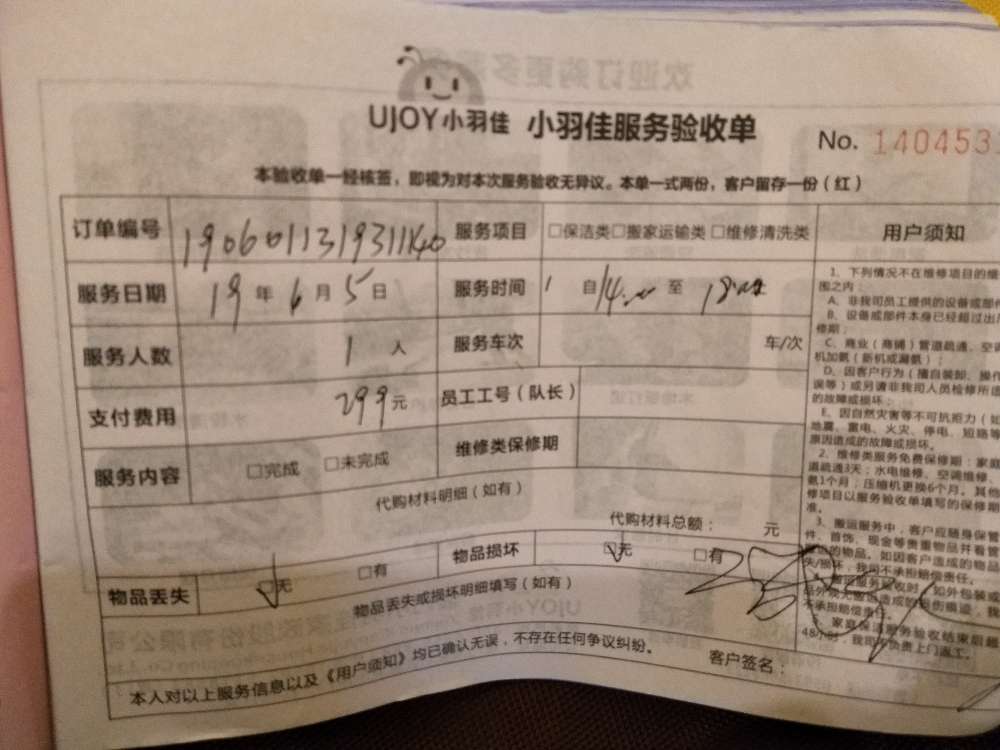 UJOY小羽佳 小羽佳服务验收单
No. 140453
本验收单一经核签，即视为对本次服务验收无异议。本单一式两份，客户留存一份（红）
订单编号 190601131931140 服务项目 □保洁类□搬家运输类□维修清洗类 用户须知
服务日期 19年6月5日 服务时间 1 自14:00至18:00
服务人数 1人 服务车次 车/次
支付费用 299元 员工工号（队长）
服务内容 □完成 □未完成 维修类保修期
代购材料明细（如有）
代购材料总额： 元
物品丢失 □无 □有 物品损坏 □无 □有
物品丢失或损坏明细填写（如有）
本人对以上服务信息以及《用户须知》均已确认无误，不存在任何争议纠纷。 客户签名：
1、下列情况不在维修项目的维
围之内：
A、非我司员工提供的设备或部件
B、设备或部件本身已经超过出
修期；
C、商业（商铺）管道疏通、空调
机加氨（新机或漏氨）；
D、因客户行为（擅自装卸、操作
误等）或另请非我司人员检修所
的故障或损坏；
E、因自然灾害等不可抗拒力（如
地震、雷电、火灾、停电、短路等
原因造成的故障或损坏。
2、维修类服务免费保修期：家庭
道疏通3天；水电维修、空调维修、
氨1个月；压缩机更换6个月。其他
修项目以服务验收单填写的保修期
准。
3、搬运服务中，客户应随身保管
件、首饰、现金等贵重物品并看管
的物品。如因客户造成的物品
失/损坏，我司不承担赔偿责任。
服务验收时，如外包装或
不承担赔偿责任。
家庭保洁服务验收结束后超
48小时，我司不负责上门返工。
欢迎订购更多
UJOY小羽佳